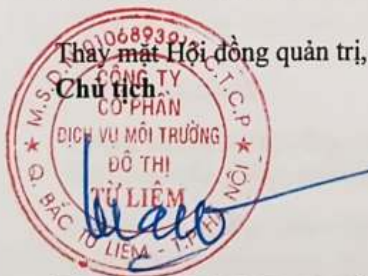 Thay mặt Hội đồng quản trị,
Chủ tịch
CÔNG TY
CỔ PHẦN
DỊCH VỤ MÔI TRƯỜNG
ĐÔ THỊ
TỪ LIÊM
Q. BẮC TỪ LIÊM - T.P HÀ NỘI